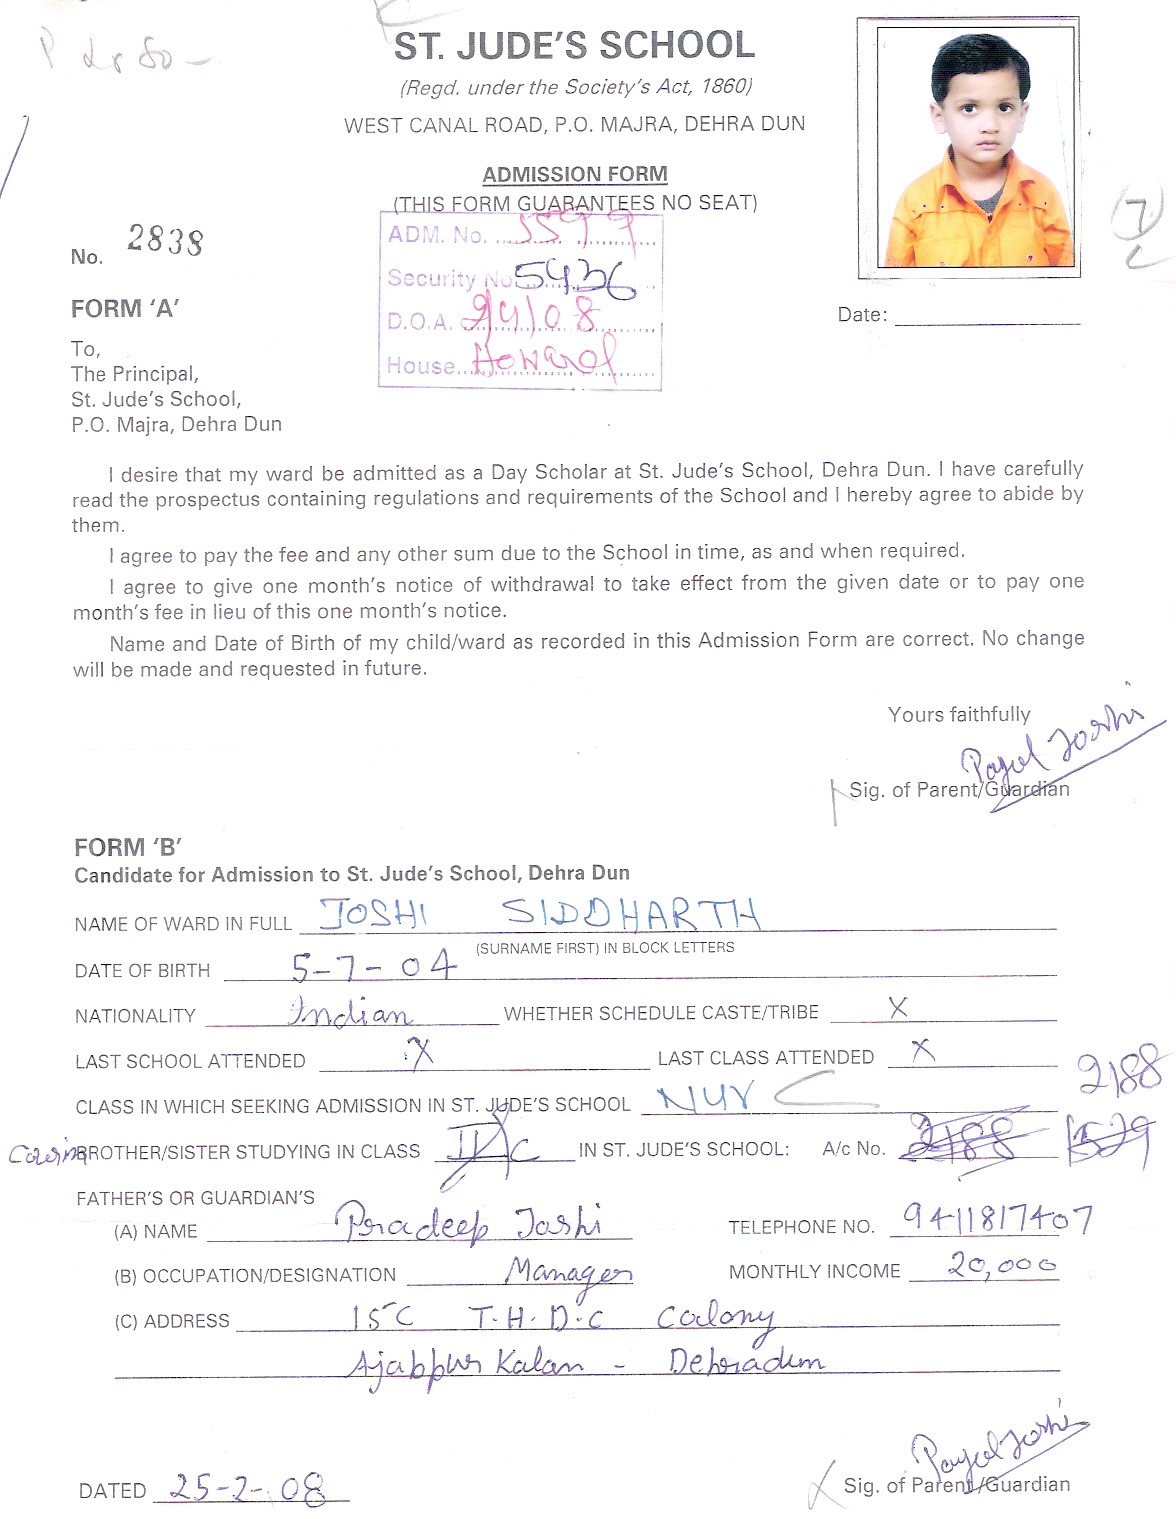 ST. JUDE'S SCHOOL
(Regd. under the Society's Act, 1860)
WEST CANAL ROAD, P.O. MAJRA, DEHRA DUN
ADMISSION FORM
(THIS FORM GUARANTEES NO SEAT)
No. 2838
ADM. No. 5599
Security No. 5436
D.O.A. 2/4/08
House Howard
7
FORM 'A'
Date:
To,
The Principal,
St. Jude's School,
P.O. Majra, Dehra Dun
I desire that my ward be admitted as a Day Scholar at St. Jude's School, Dehra Dun. I have carefully
read the prospectus containing regulations and requirements of the School and I hereby agree to abide by
them.
I agree to pay the fee and any other sum due to the School in time, as and when required.
I agree to give one month's notice of withdrawal to take effect from the given date or to pay one
month's fee in lieu of this one month's notice.
Name and Date of Birth of my child/ward as recorded in this Admission Form are correct. No change
will be made and requested in future.
Yours faithfully
Payal Joshi
Sig. of Parent/Guardian
FORM 'B'
Candidate for Admission to St. Jude's School, Dehra Dun
NAME OF WARD IN FULL JOSHI SIDDHARTH
(SURNAME FIRST) IN BLOCK LETTERS
DATE OF BIRTH 5-7-04
NATIONALITY Indian WHETHER SCHEDULE CASTE/TRIBE X
LAST SCHOOL ATTENDED X LAST CLASS ATTENDED X
2188
CLASS IN WHICH SEEKING ADMISSION IN ST. JUDE'S SCHOOL NUR C
Cousin BROTHER/SISTER STUDYING IN CLASS C IN ST. JUDE'S SCHOOL: A/c No. 2188
FATHER'S OR GUARDIAN'S
(A) NAME Pradeep Joshi TELEPHONE NO. 9411817407
(B) OCCUPATION/DESIGNATION Manager MONTHLY INCOME 20,000
(C) ADDRESS 15C T.H.D.C Colony
Ajabpur Kalan - Dehradun
Payal Joshi
DATED 25-2-08 Sig. of Parent/Guardian